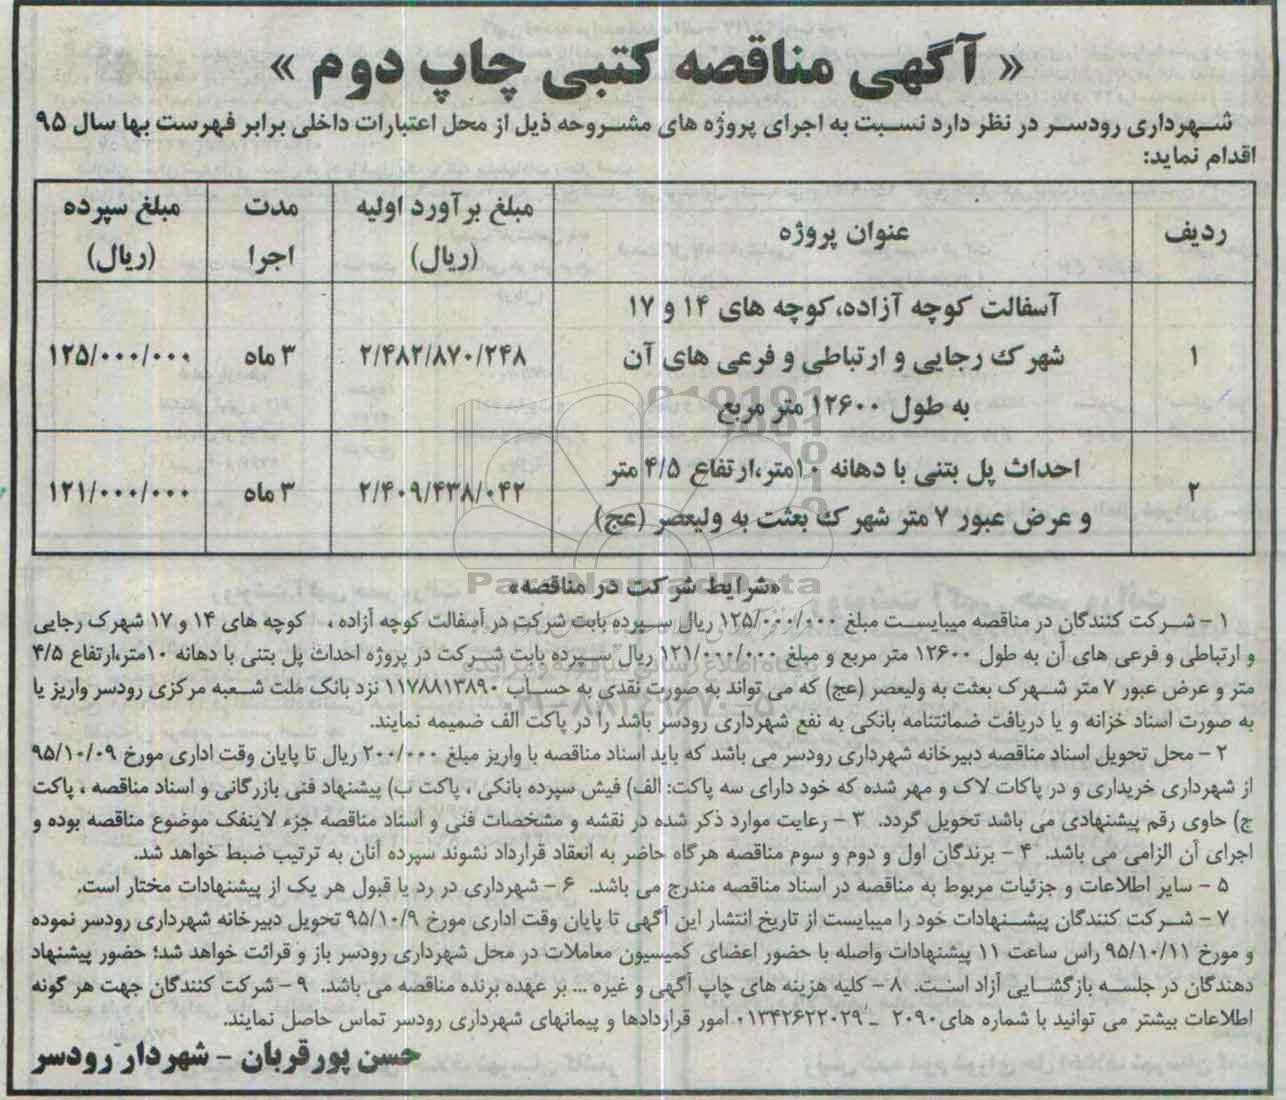 « آگهی مناقصه کتبی چاپ دوم »
شهرداری رودسر در نظر دارد نسبت به اجرای پروژه های مشروحه ذیل از محل اعتبارات داخلی برابر فهرست بها سال ۹۵
اقدام نماید:
ردیف
عنوان پروژه
مبلغ برآورد اولیه
(ریال)
مدت
اجرا
مبلغ سپرده
(ریال)
۱
آسفالت کوچه آزاده،کوچه های ۱۴ و ۱۷
شهرک رجایی و ارتباطی و فرعی های آن
به طول ۱۲۶۰۰ متر مربع
۲/۴۸۲/۸۷۰/۲۴۸
۳ ماه
۱۲۵/۰۰۰/۰۰۰
۲
احداث پل بتنی با دهانه ۱۰متر،ارتفاع ۴/۵ متر
و عرض عبور ۷ متر شهرک بعثت به ولیعصر (عج)
۲/۴۰۹/۴۳۸/۰۴۲
۳ ماه
۱۲۱/۰۰۰/۰۰۰
«شرایط شرکت در مناقصه»
ParsNamadData
۱ - شرکت کنندگان در مناقصه میبایست مبلغ ۱۲۵/۰۰۰/۰۰۰ ریال سپرده بابت شرکت در آسفالت کوچه آزاده ، کوچه های ۱۴ و ۱۷ شهرک رجایی
و ارتباطی و فرعی های آن به طول ۱۲۶۰۰ متر مربع و مبلغ ۱۲۱/۰۰۰/۰۰۰ ریال سپرده بابت شرکت در پروژه احداث پل بتنی با دهانه ۱۰متر،ارتفاع ۴/۵
متر و عرض عبور ۷ متر شهرک بعثت به ولیعصر (عج) که می تواند به صورت نقدی به حساب ۱۱۷۸۸۱۳۸۹۰ نزد بانک ملت شعبه مرکزی رودسر واریز یا
به صورت اسناد خزانه و یا دریافت ضمانتنامه بانکی به نفع شهرداری رودسر باشد را در پاکت الف ضمیمه نمایند.
۲ - محل تحویل اسناد مناقصه دبیرخانه شهرداری رودسر می باشد که باید اسناد مناقصه با واریز مبلغ ۲۰۰/۰۰۰ ریال تا پایان وقت اداری مورخ ۹۵/۱۰/۰۹
از شهرداری خریداری و در پاکات لاک و مهر شده که خود دارای سه پاکت: الف) فیش سپرده بانکی ، پاکت ب) پیشنهاد فنی بازرگانی و اسناد مناقصه ، پاکت
ج) حاوی رقم پیشنهادی می باشد تحویل گردد. ۳ - رعایت موارد ذکر شده در نقشه و مشخصات فنی و اسناد مناقصه جزء لاینفک موضوع مناقصه بوده و
اجرای آن الزامی می باشد. ۴ - برندگان اول و دوم و سوم مناقصه هرگاه حاضر به انعقاد قرارداد نشوند سپرده آنان به ترتیب ضبط خواهد شد.
۵ - سایر اطلاعات و جزئیات مربوط به مناقصه در اسناد مناقصه مندرج می باشد. ۶ - شهرداری در رد یا قبول هر یک از پیشنهادات مختار است.
۷ - شرکت کنندگان پیشنهادات خود را میبایست از تاریخ انتشار این آگهی تا پایان وقت اداری مورخ ۹۵/۱۰/۹ تحویل دبیرخانه شهرداری رودسر نموده
و مورخ ۹۵/۱۰/۱۱ راس ساعت ۱۱ پیشنهادات واصله با حضور اعضای کمیسیون معاملات در محل شهرداری رودسر باز و قرائت خواهد شد؛ حضور پیشنهاد
دهندگان در جلسه بازگشایی آزاد است. ۸ - کلیه هزینه های چاپ آگهی و غیره ... بر عهده برنده مناقصه می باشد. ۹ - شرکت کنندگان جهت هر گونه
اطلاعات بیشتر می توانید با شماره های ۲۰۹۰ - ۰۱۳۴۲۶۲۲۰۲۹ امور قراردادها و پیمانهای شهرداری رودسر تماس حاصل نمایند.
حسن پورقربان - شهردار رودسر